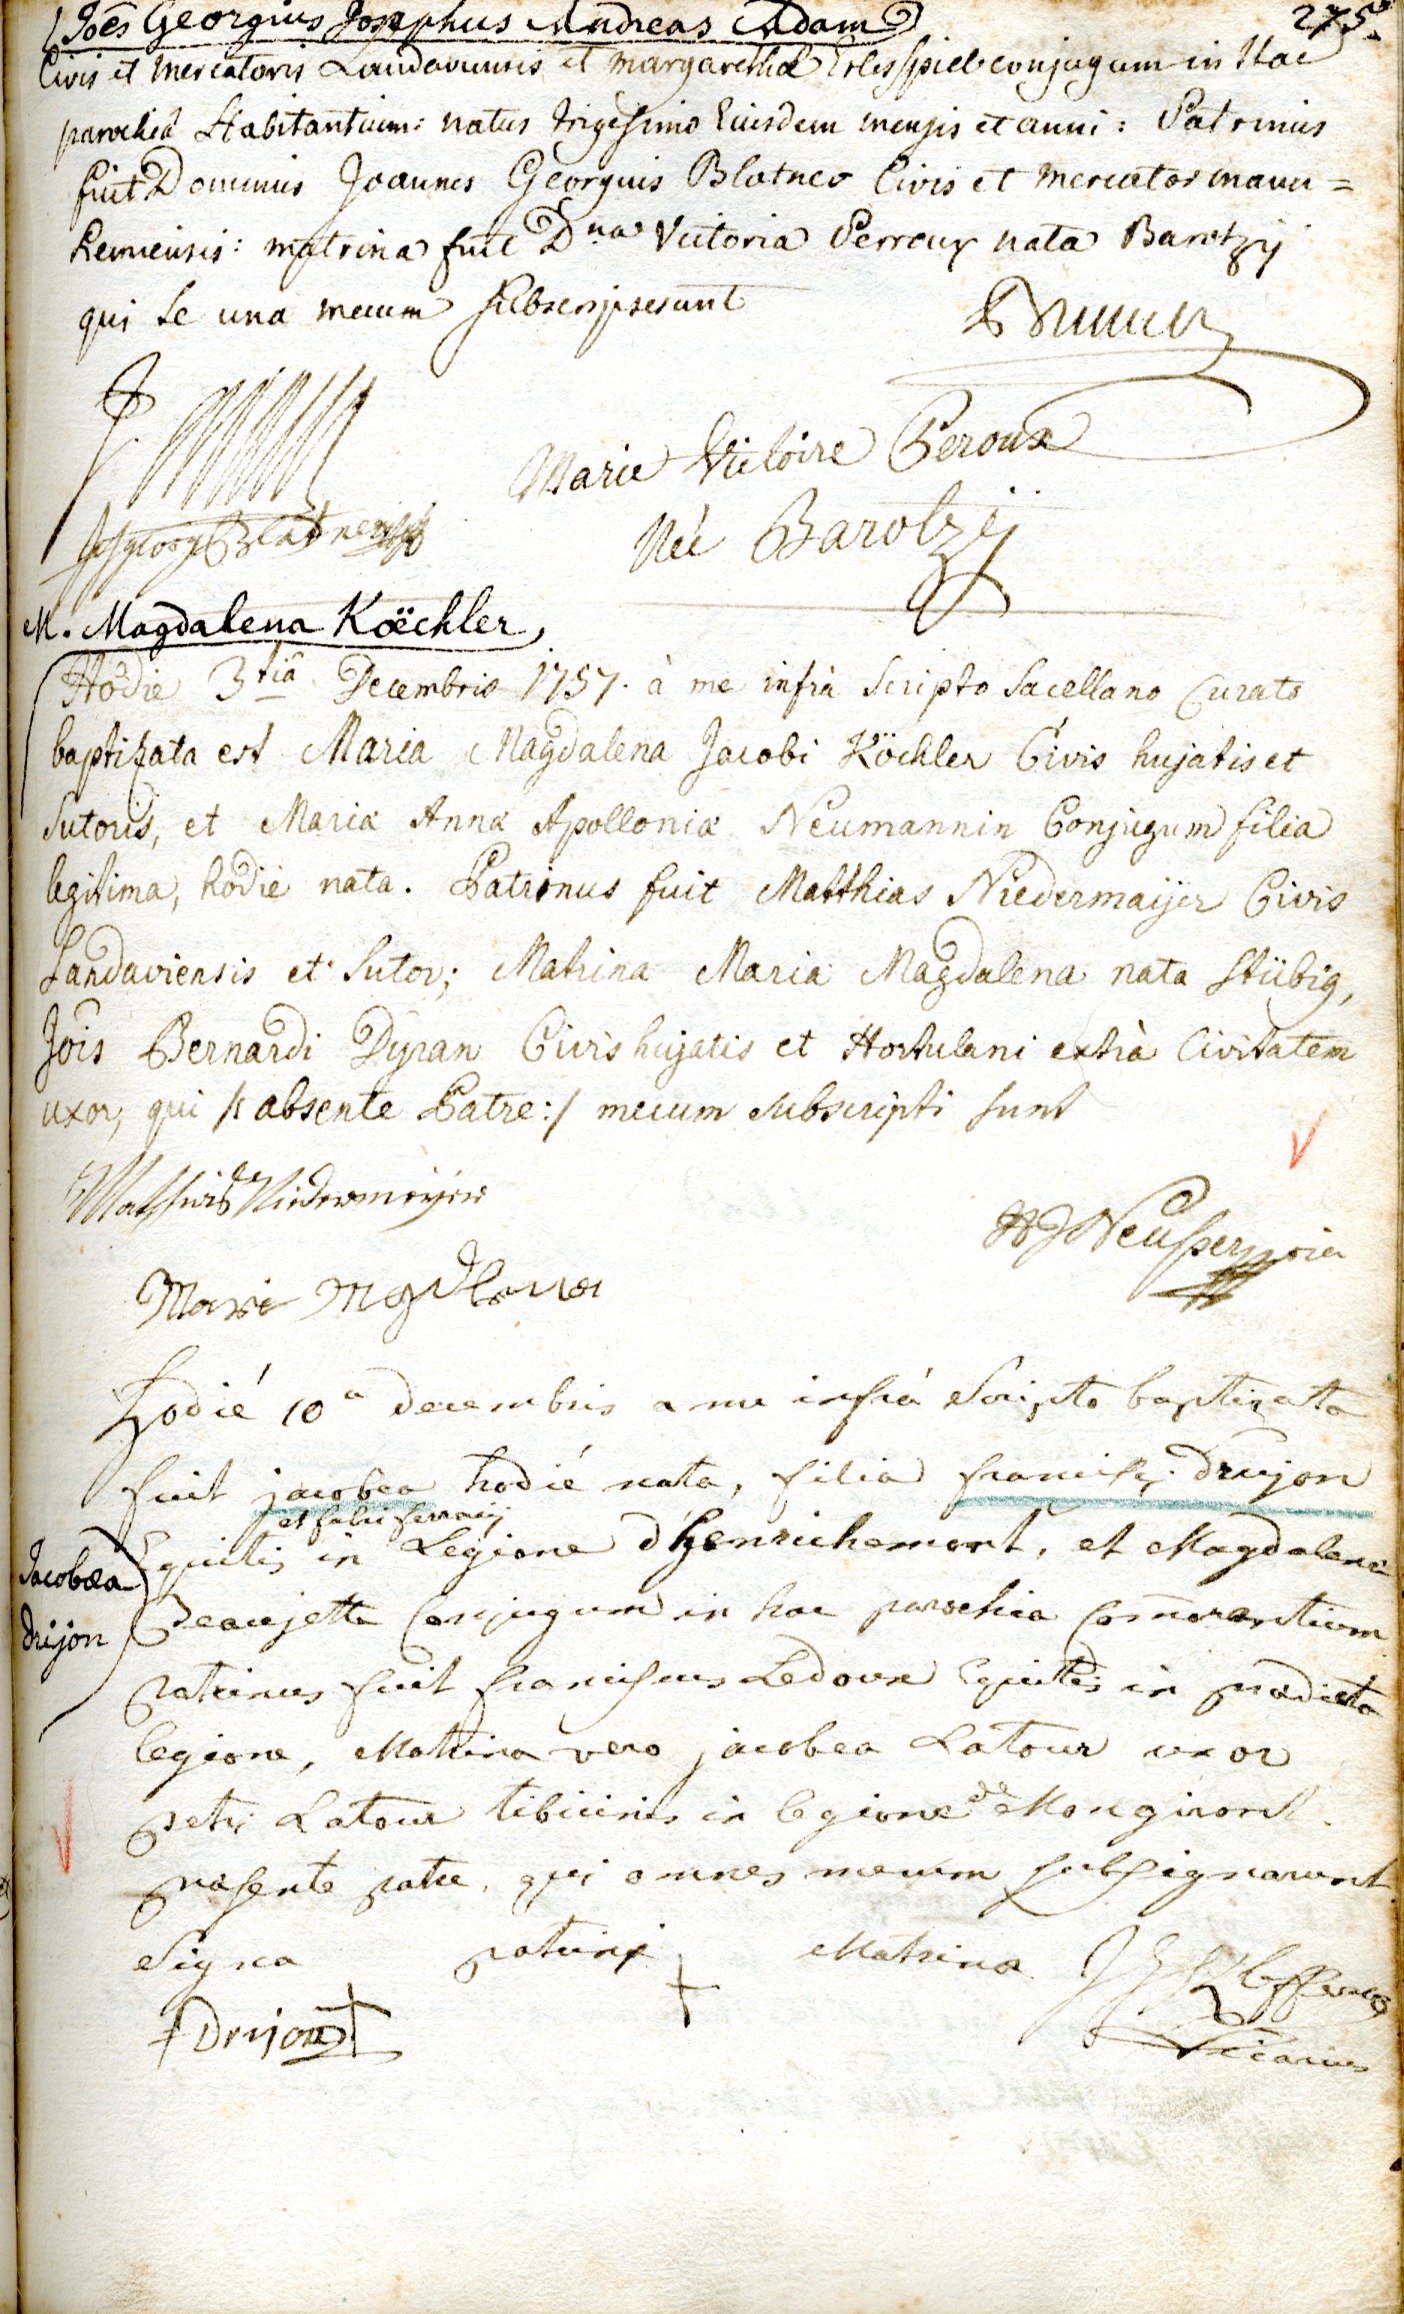 Joēs Georgius Josephus Andreas Adam
275.
Civis et mercatoris Landaviensis et margarethæ Erlesspiel conjugum in Hac
parochia Habitantium: natus trigesimo Eiusdem mensis et anni: Patrinus
fuit Dominus Joannes Georgius Blatner Civis et mercator man=
hemiensis: matrina fuit Dna Victoria Perroux nata Barotzÿ
qui Se una mecum Subscripserunt
Marie Victoire Peroux
Neé Barotzÿ
M. Magdalena Köechler
Hodie 3tiâ Decembris 1757. à me infrà Scripto Sacellano Curato
baptizata est Maria Magdalena Jacobi Köchler Civis hujatis et
Sutoris, et Mariæ Annæ Apolloniæ Neumannin Conjugum filia
legitima, hodie nata. Patrinus fuit Matthias Niedermaÿer Civis
Landaviensis et Sutor; Matrina Maria Magdalena nata Stübig,
Jois Bernardi Dÿran Civis hujatis et Hortulani extrà Civitatem
uxor, qui /: absente Patre :/ mecum subscripti sunt
Matthias Niedermeÿer
Maria Magdlena
Hodié 10a decembris a me infrá Scripto baptizata
fuit jacobea hodié nata, filia francisci drujon
et fabri ferrarij
Equitis in Legione d'henrichemont, et Magdalena
Beaujette Conjugum in hac parochia Com̄orantium
patrinus fuit franciscus Ledoux Equitis in prædicta
legione, Matrina vero jacobea Latour uxor
petri Latour tibicinis in legione de Mongiront.
præsente patre, qui omnes mecum subsignarunt
Jacobæa
drijon
Signa patrini + Matrinæ
Drijon +
Vicarius